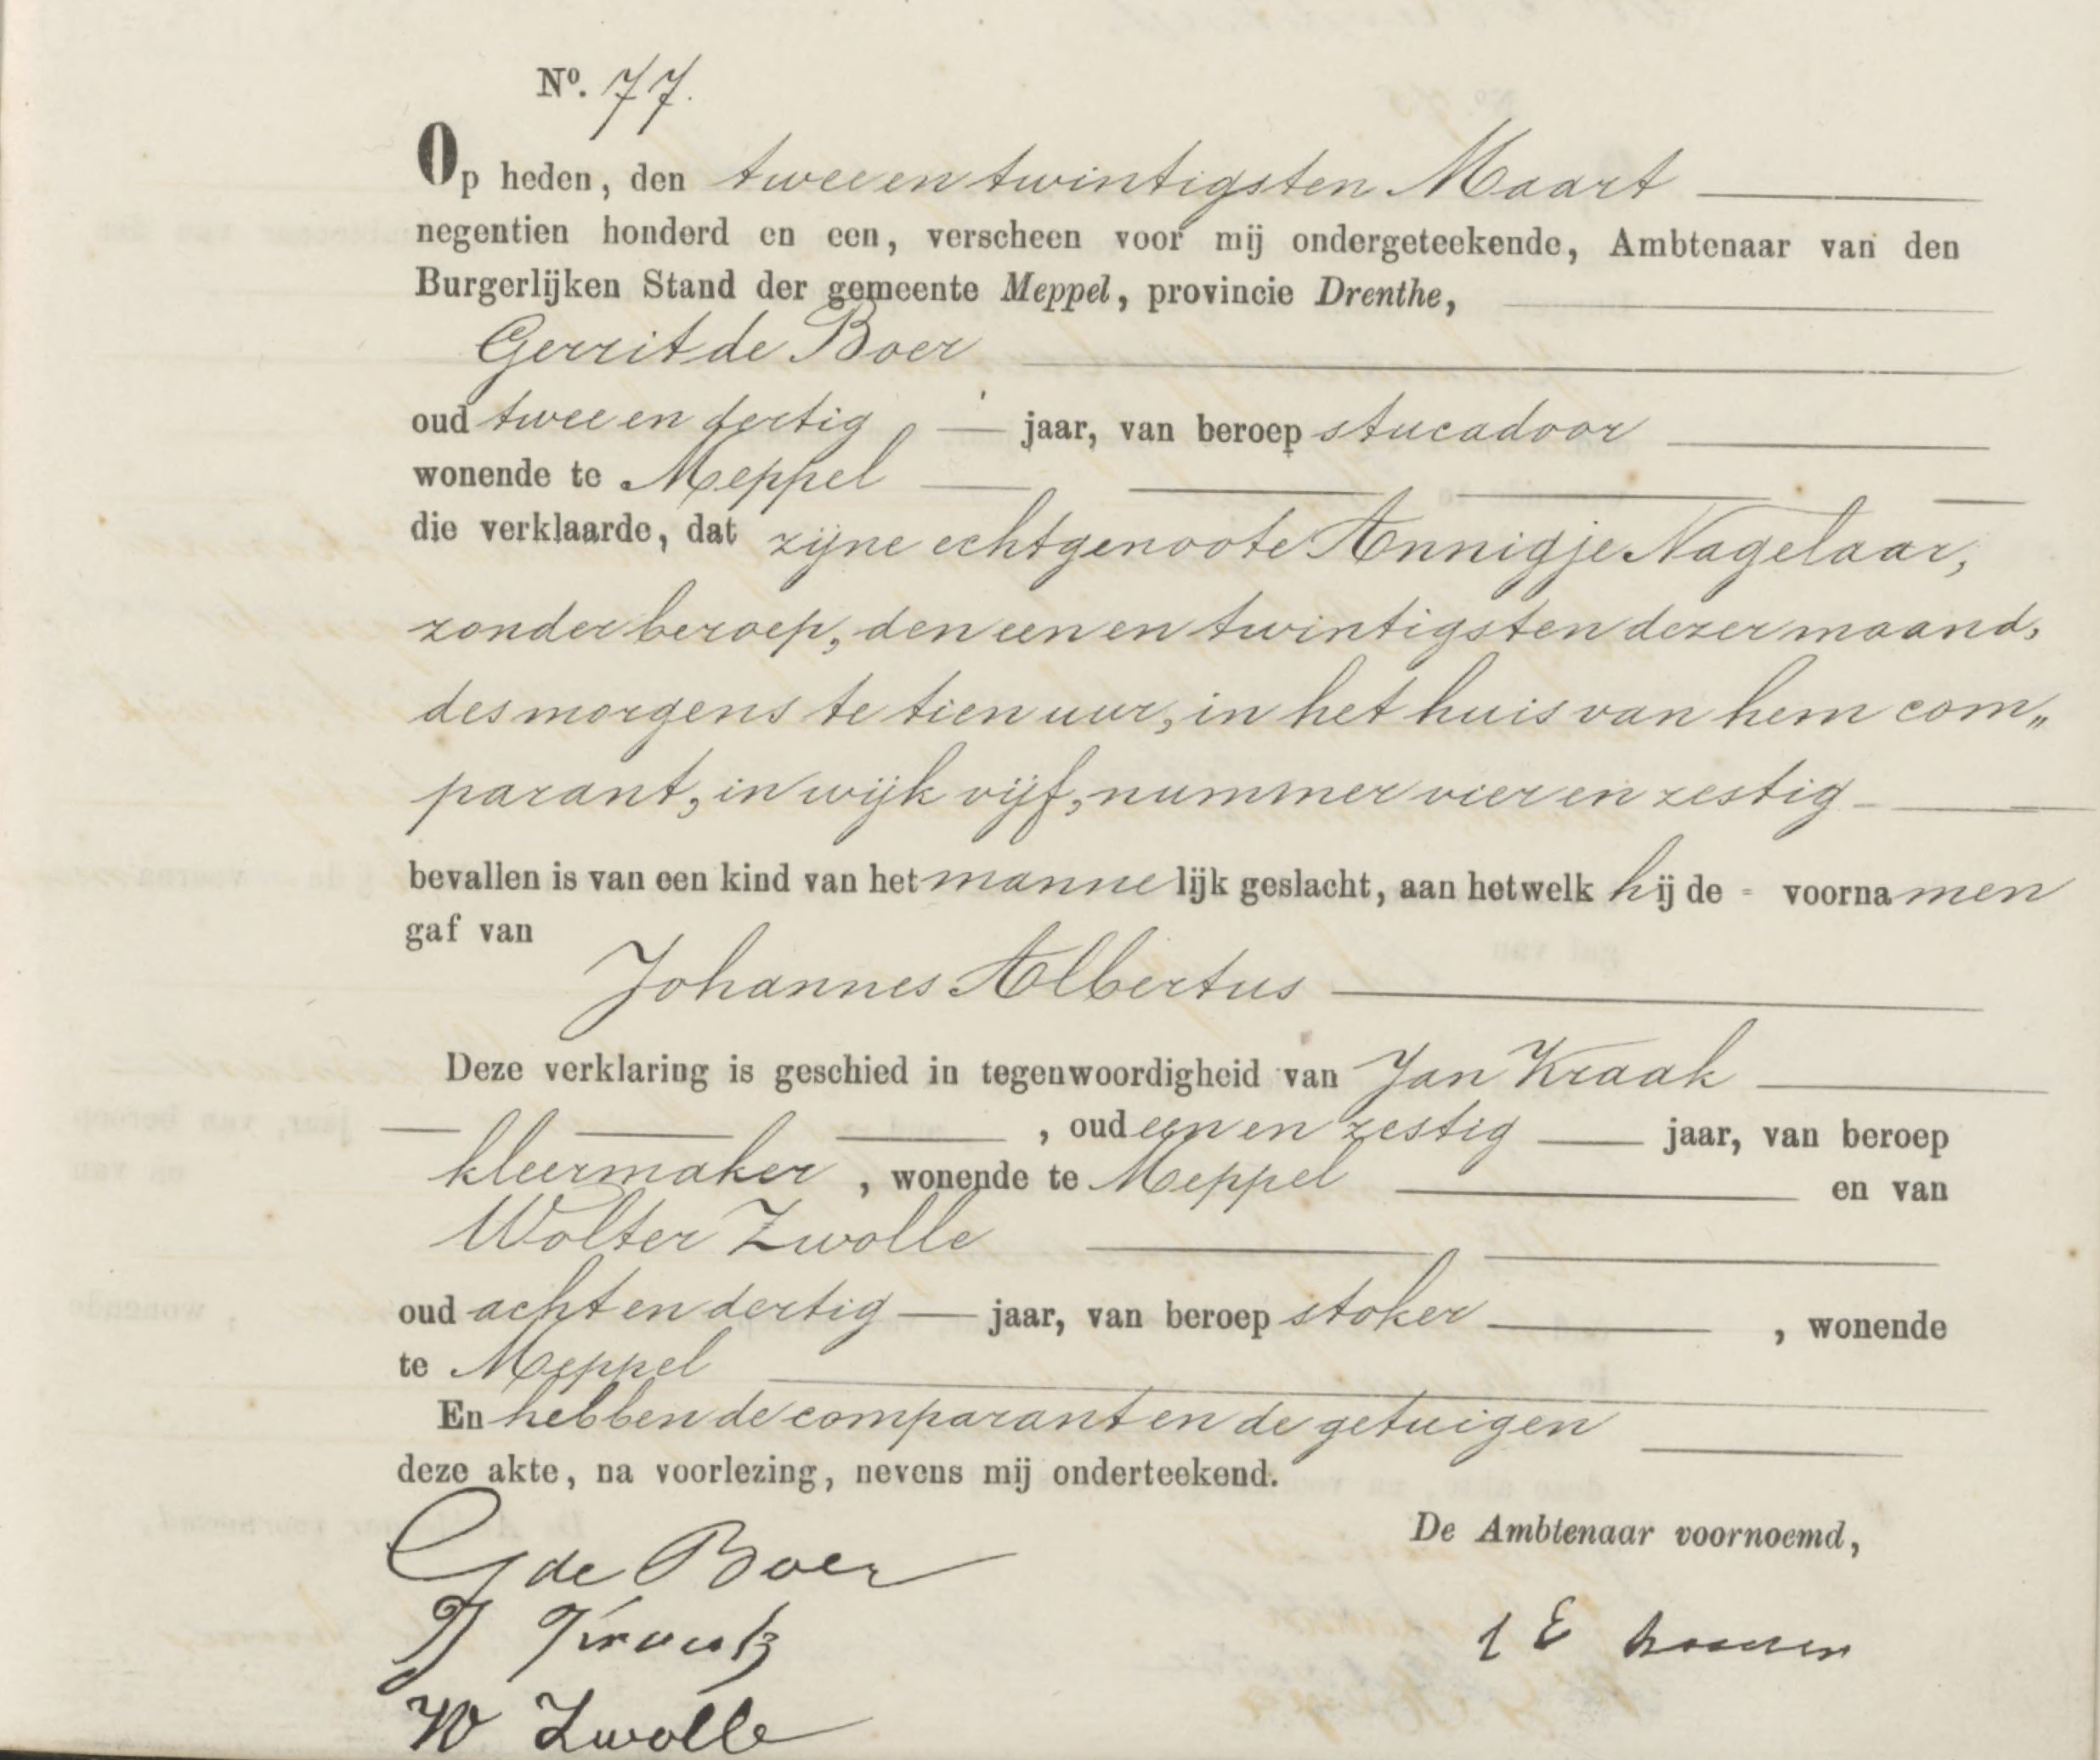 Nº. 77.
Op heden, den twee en twintigsten Maart
negentien honderd en een, verscheen voor mij ondergeteekende, Ambtenaar van den
Burgerlijken Stand der gemeente Meppel, provincie Drenthe,
Gerrit de Boer
oud twee en dertig jaar, van beroep stucadoor
wonende te Meppel
die verklaarde, dat zijne echtgenoote Annigje Nagelaar,
zonder beroep, den een en twintigsten dezer maand,
des morgens te tien uur, in het huis van hem com„
parant, in wijk vijf, nummer vier en zestig
bevallen is van een kind van het mannelijk geslacht, aan hetwelk hij de = voornamen
gaf van
Johannes Albertus
Deze verklaring is geschied in tegenwoordigheid van Jan Kraak
, oud een en zestig jaar, van beroep
kleermaker, wonende te Meppel en van
Wolter Zwolle
oud acht en dertig jaar, van beroep stoker, wonende
te Meppel
En hebben de comparant en de getuigen
deze akte, na voorlezing, nevens mij onderteekend.
De Ambtenaar voornoemd,
G de Boer
J Kraak
W Zwolle